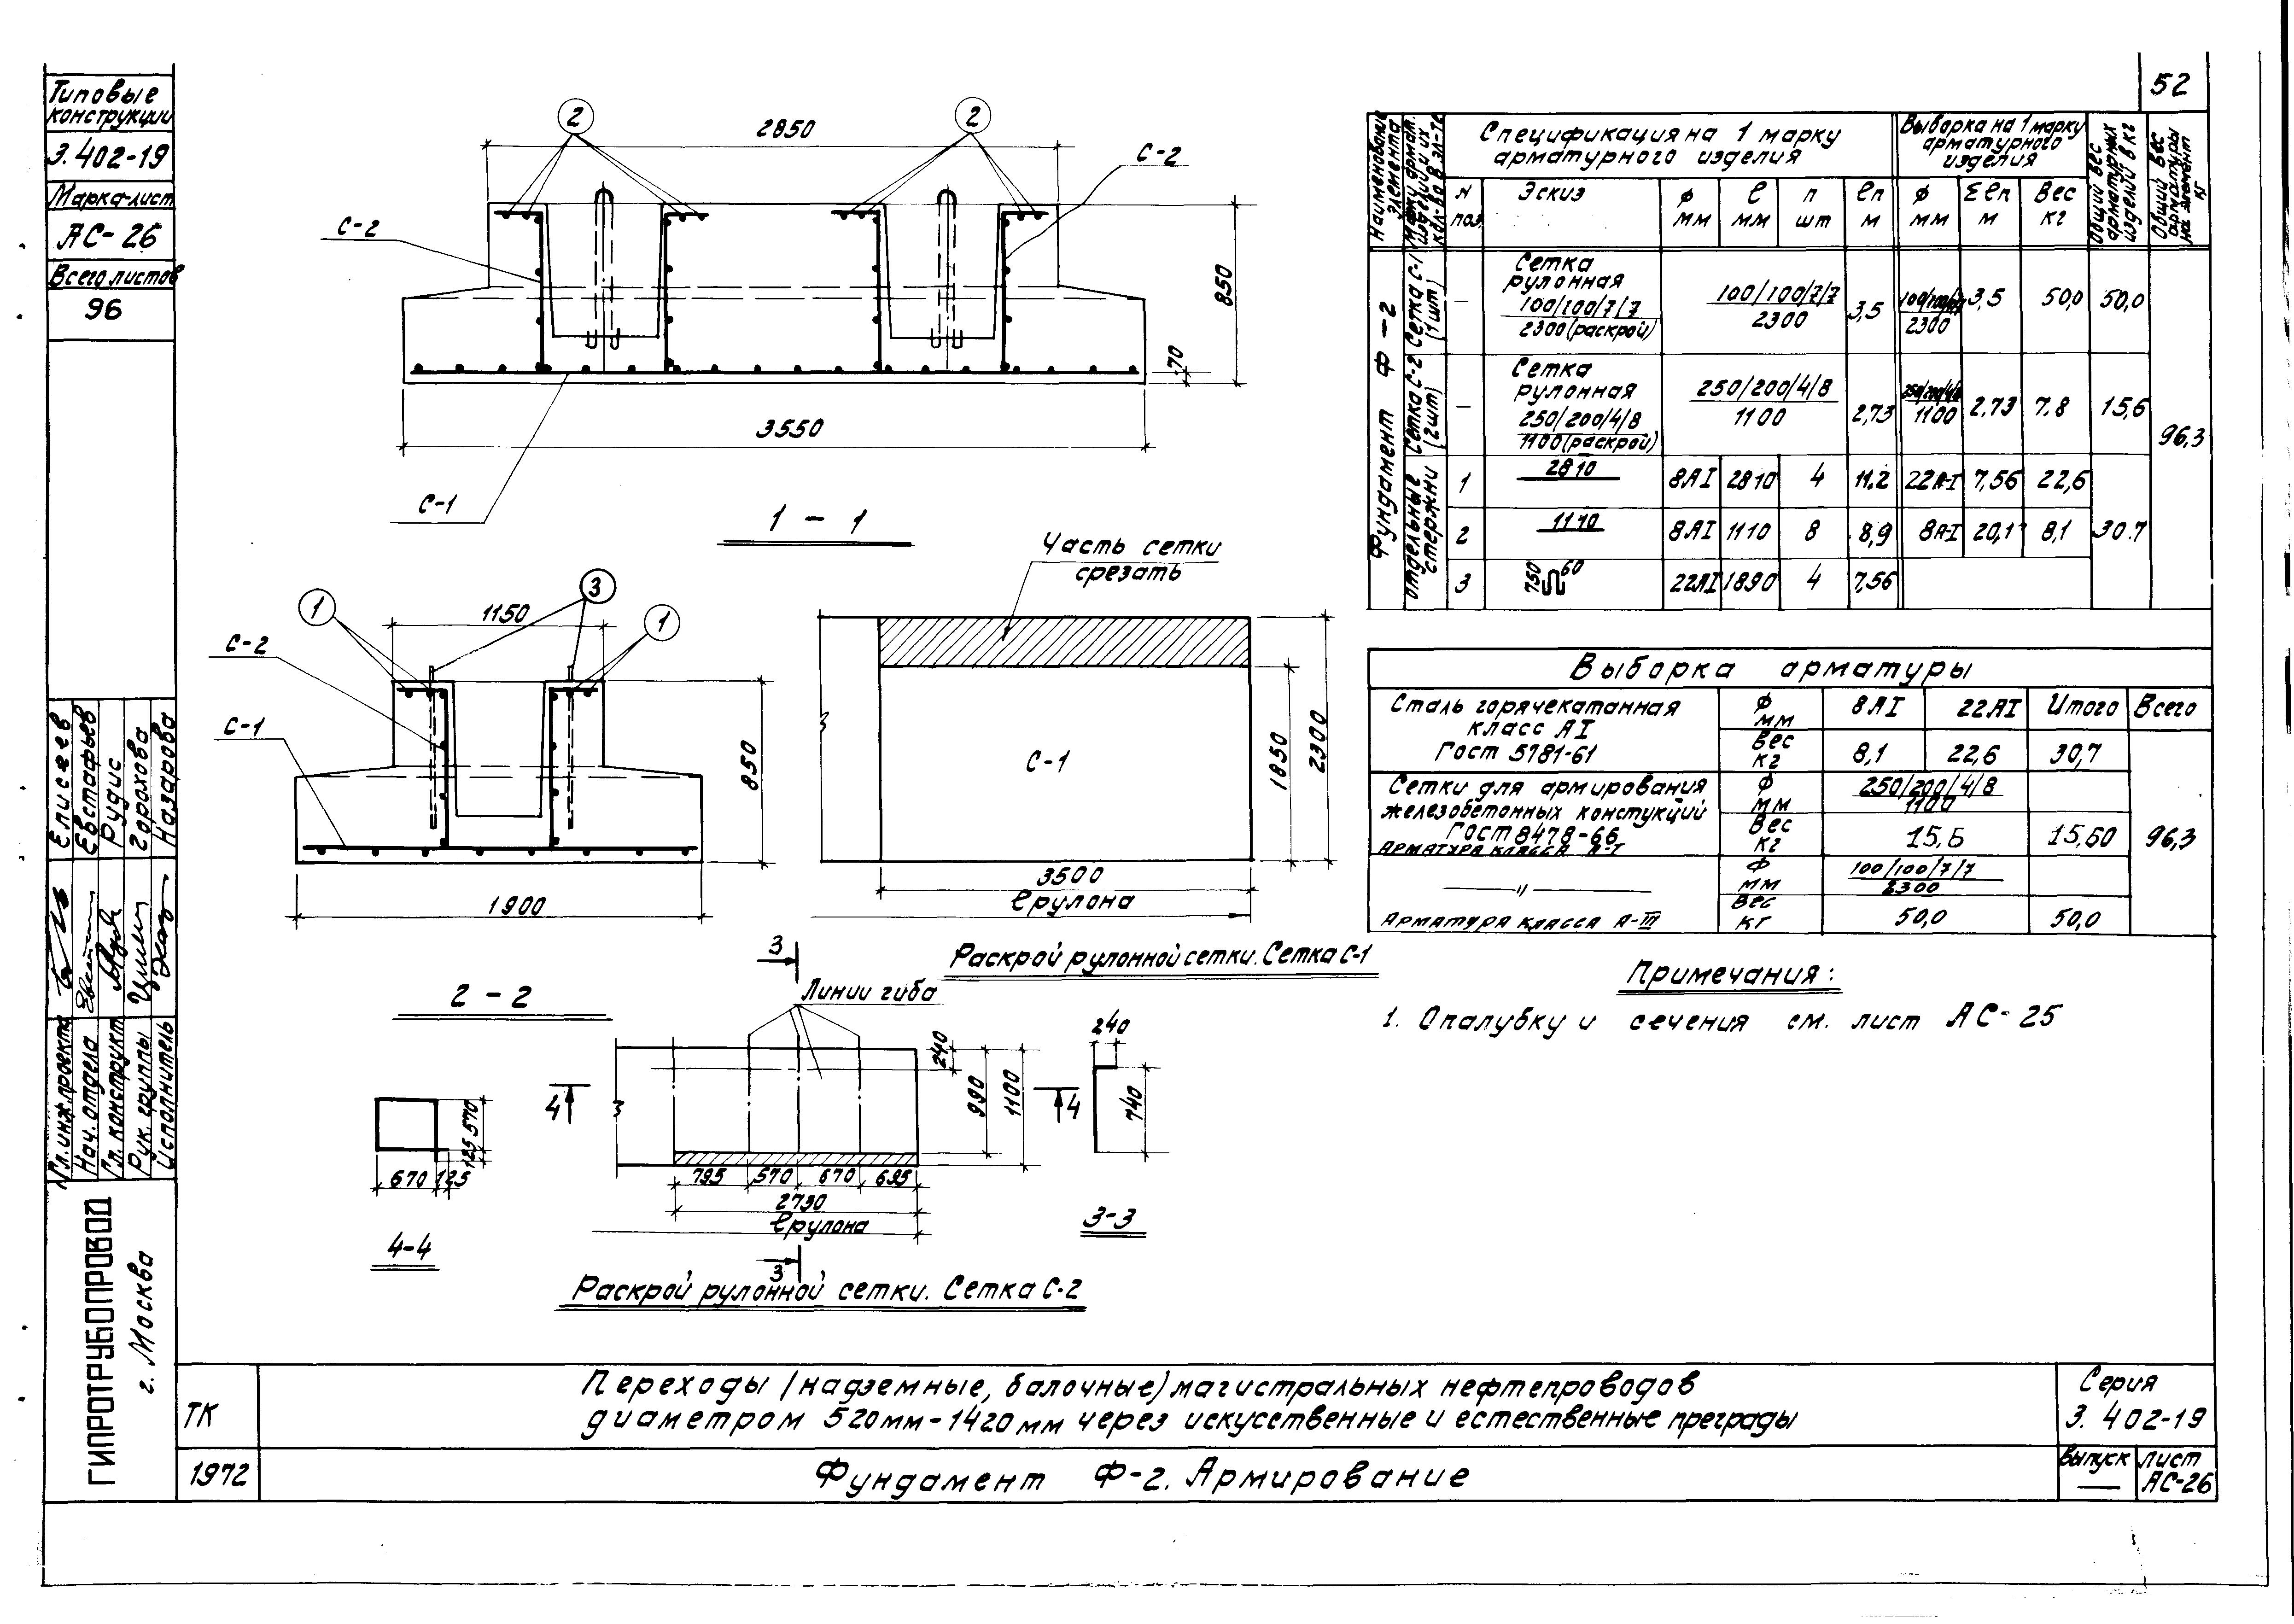 52
Типовые
конструкции
3.402-19
Марка-лист
АС-26
Всего листов
96
Гл.инж.проекта
Елисеев
Нач. отдела
Евстафьев
Гл. конструкт
Рудис
Рук. группы
Горохова
Исполнитель
Назарова
ГИПРОТРУБОПРОВОД
г. Москва
2
2
2850
С-2
С-2
850
70
3550
С-1
1 - 1
1
3
1
1150
С-2
С-1
850
1900
2 - 2
Часть сетки
срезать
С-1
1850
2300
3500
ℓрулона
Раскрой рулонной сетки. Сетка С-1
3
Линии гиба
240
990
1100
4
4
795
570
670
695
2730
ℓрулона
3
Раскрой рулонной сетки. Сетка С-2
570
125
670
125
4-4
240
740
3-3
Наименование элемента
Марки армат. изделий и их кол-во в эл-те
Спецификация на 1 марку
арматурного изделия
Выборка на 1 марку
арматурного
изделия
Общий вес арматурных изделий в кг
Общий вес арматуры на элемент кг
N поз.
Эскиз
ф мм
ℓ мм
п шт
ℓп м
ф мм
Σℓп м
Вес кг
Фундамент Ф-2
Сетка С-1 (1 шт)
—
Сетка
рулонная
100/100/7/7
2300 (раскрой)
100/100/7/7
2300
3,5
100/100/7/7
2300
3,5
50,0
50,0
Сетка С-2 (2 шт)
—
Сетка
рулонная
250/200/4/8
1100 (раскрой)
250/200/4/8
1100
2,73
250/200/4/8
1100
2,73
7,8
15,6
96,3
Отдельные стержни
1
2810
8АI
2810
4
11,2
22А-I
7,56
22,6
2
1110
8АI
1110
8
8,9
8А-I
20,1
8,1
30.7
3
750
60
22АI
1890
4
7,56
Выборка арматуры
Сталь горячекатанная
класс АI
Гост 5781-61
ф мм
8АI
22АI
Итого
Всего
Вес кг
8,1
22,6
30,7
Сетки для армирования
железобетонных констукций
Гост 8478-66
Арматура класса А-I
ф мм
250/200/4/8
1100
Вес кг
15,6
15,60
96,3
—〃—
Арматура класса А-III
ф мм
100/100/7/7
2300
Вес кг
50,0
50,0
Примечания:
1. Опалубку и сечения см. лист АС-25
ТК
1972
Переходы (надземные, балочные) магистральных нефтепроводов
диаметром 520мм-1420мм через искусственные и естественные преграды
Фундамент Ф-2. Армирование
Серия
3.402-19
выпуск
—
лист
АС-26